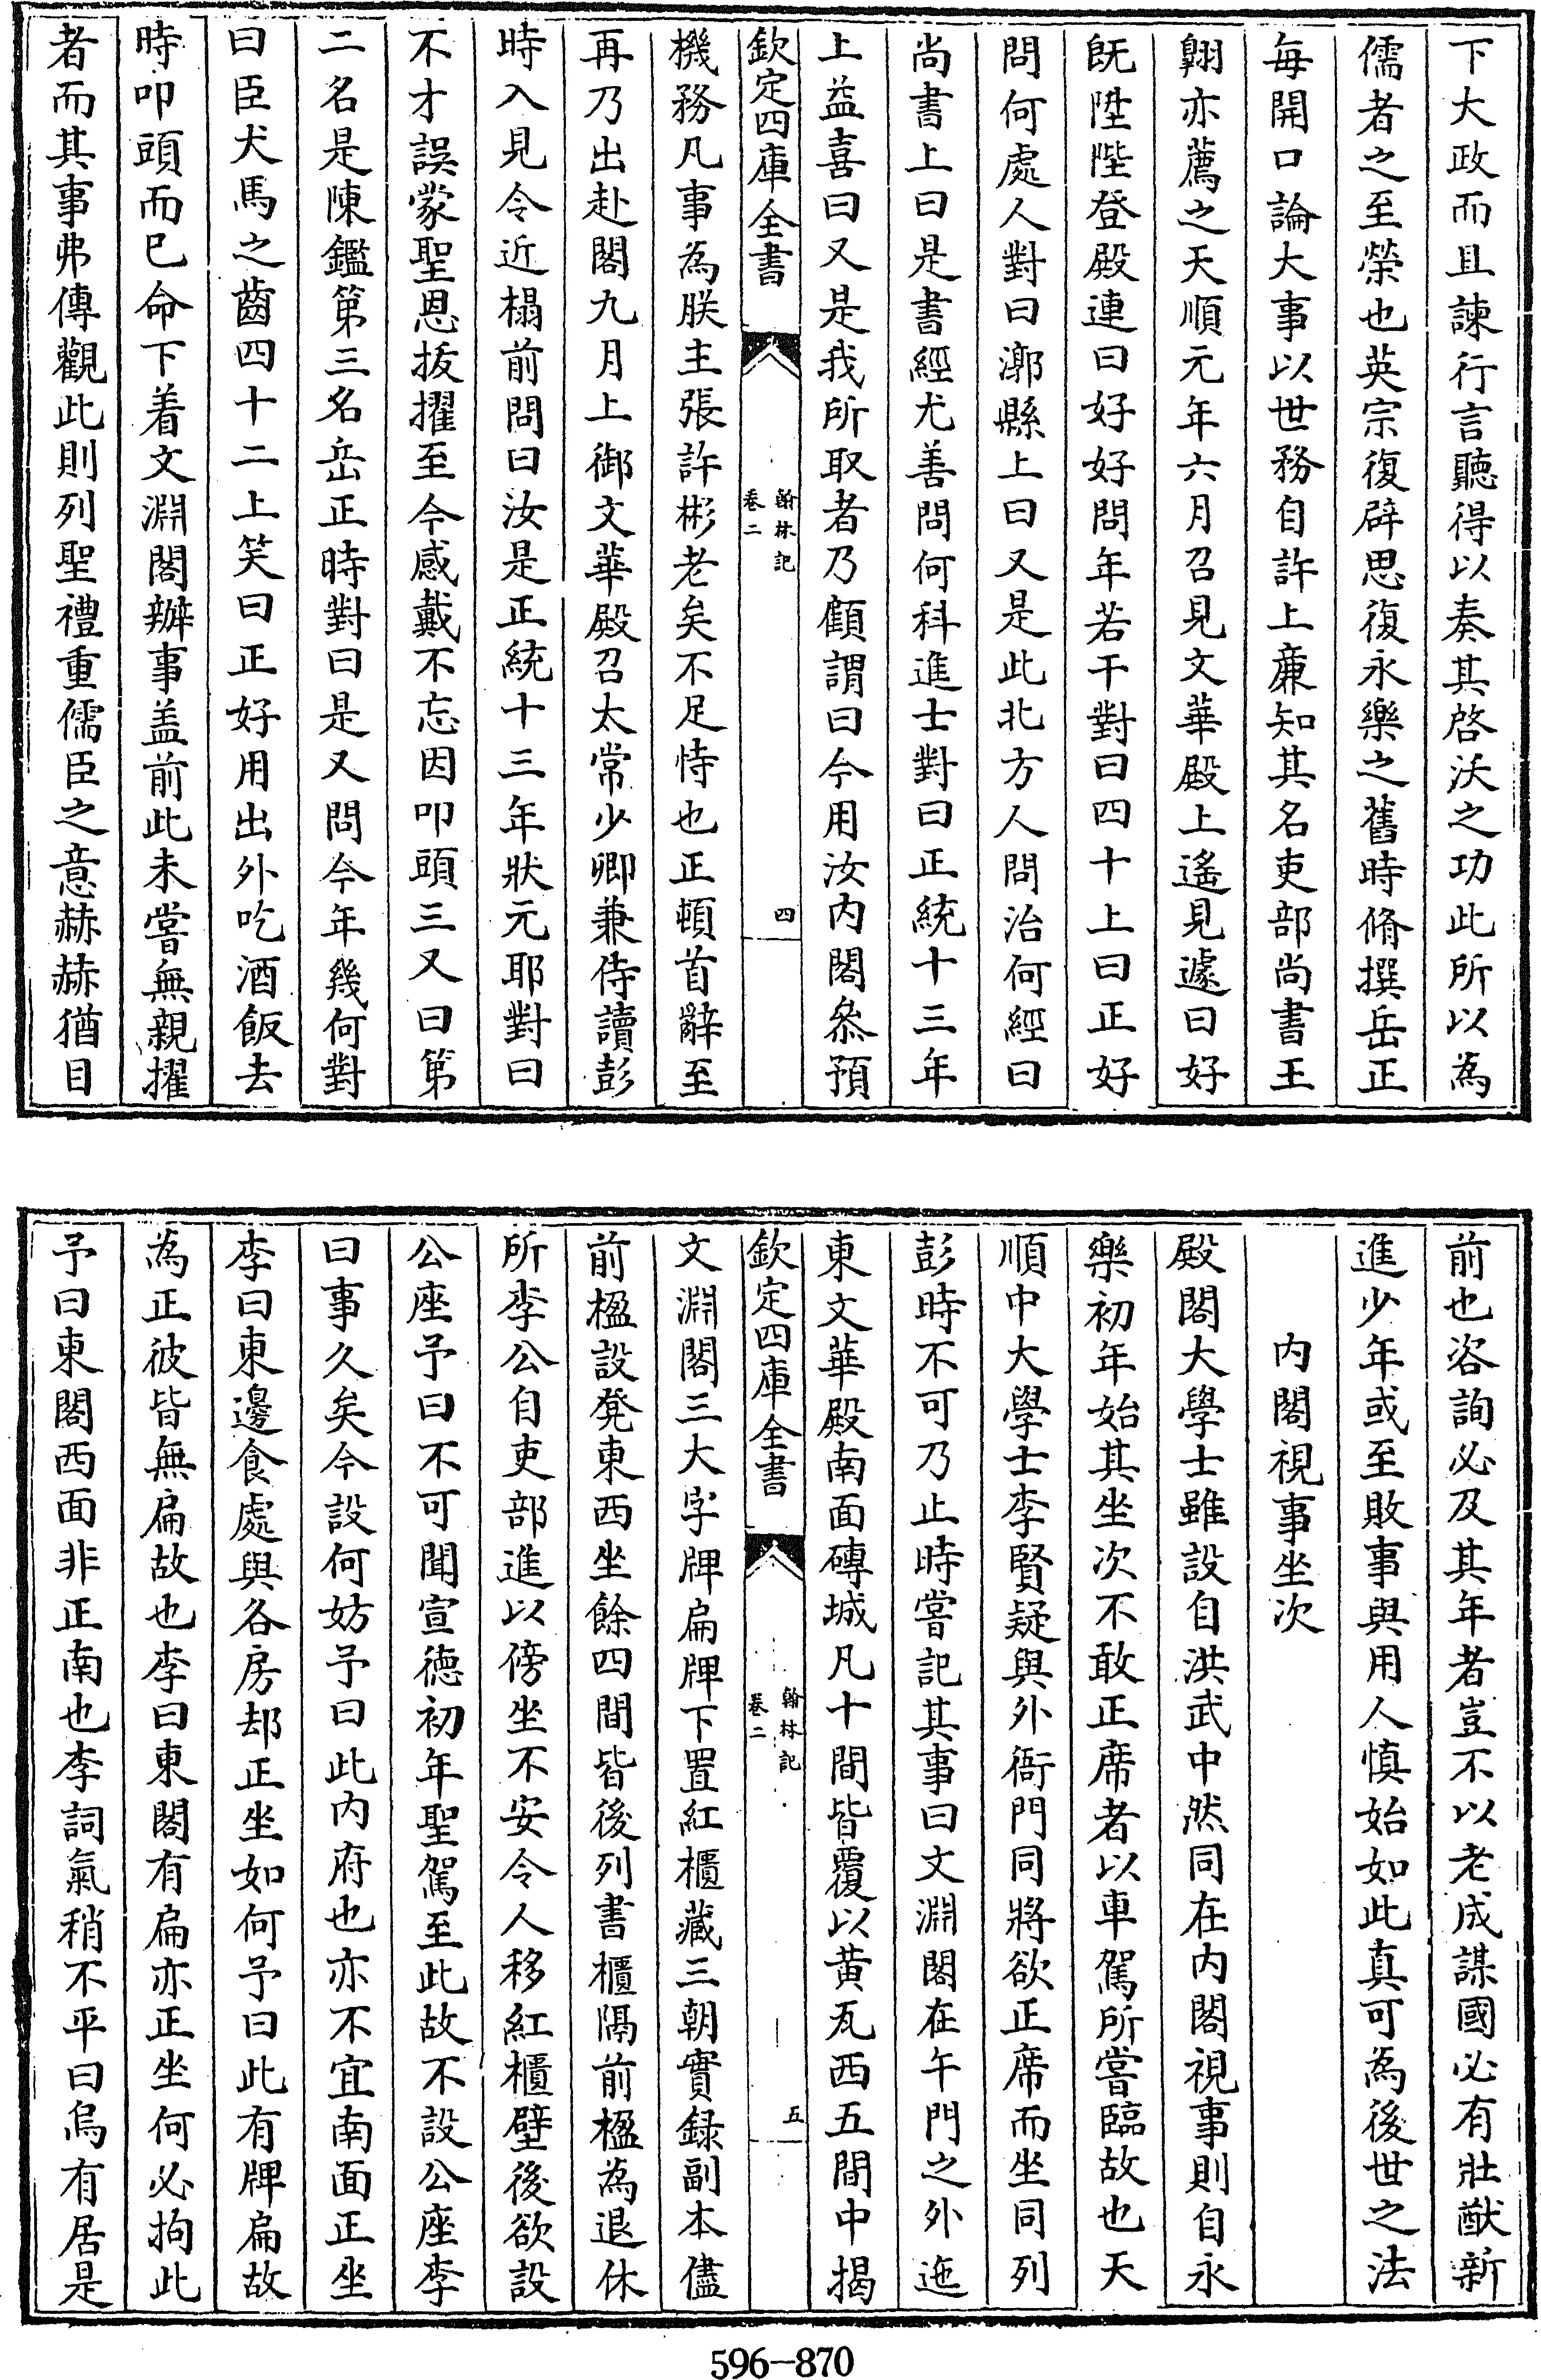 下大政而且諫行言聽得以奏其啓沃之功此所以為
儒者之至榮也英宗復辟思復永樂之舊時脩撰岳正
每開口論大事以世務自許上廉知其名吏部尚書王
翺亦薦之天順元年六月召見文華殿上遙見遽曰好
旣陞陛登殿連曰好好問年若干對曰四十上曰正好
問何處人對曰漷縣上曰又是此北方人問治何經曰
尚書上曰是書經尤善問何科進士對曰正統十三年
上益喜曰又是我所取者乃顧謂曰今用汝内閣叅預
欽定四庫全書
翰林記
卷二
四
機務凡事為朕主張許彬老矣不足恃也正頓首辭至
再乃出赴閣九月上御文華殿召太常少卿兼侍讀彭
時入見令近榻前問曰汝是正統十三年狀元耶對曰
不才誤蒙聖恩拔擢至今感戴不忘因叩頭三又曰第
二名是陳鑑第三名岳正時對曰是又問今年幾何對
曰臣犬馬之齒四十二上笑曰正好用出外吃酒飯去
時叩頭而已命下着文淵閣辦事盖前此未嘗無親擢
者而其事弗傳觀此則列聖禮重儒臣之意赫赫猶目
前也咨詢必及其年者豈不以老成謀國必有壯猷新
進少年或至敗事與用人慎始如此真可為後世之法
内閣視事坐次
殿閣大學士雖設自洪武中然同在内閣視事則自永
樂初年始其坐次不敢正席者以車駕所嘗臨故也天
順中大學士李賢疑與外衙門同將欲正席而坐同列
彭時不可乃止時嘗記其事曰文淵閣在午門之外迤
東文華殿南面磚城凡十間皆覆以黄瓦西五間中揭
欽定四庫全書
翰林記
卷二
五
文淵閣三大字牌扁牌下置紅櫃藏三朝實録副本儘
前楹設凳東西坐餘四間皆後列書櫃隔前楹為退休
所李公自吏部進以傍坐不安令人移紅櫃壁後欲設
公座予曰不可聞宣徳初年聖駕至此故不設公座李
曰事久矣今設何妨予曰此内府也亦不宜南面正坐
李曰東邊食處與各房却正坐如何予曰此有牌扁故
為正彼皆無扁故也李曰東閣有扁亦正坐何必拘此
予曰東閣西面非正南也李詞氣稍不平曰烏有居是
596-870